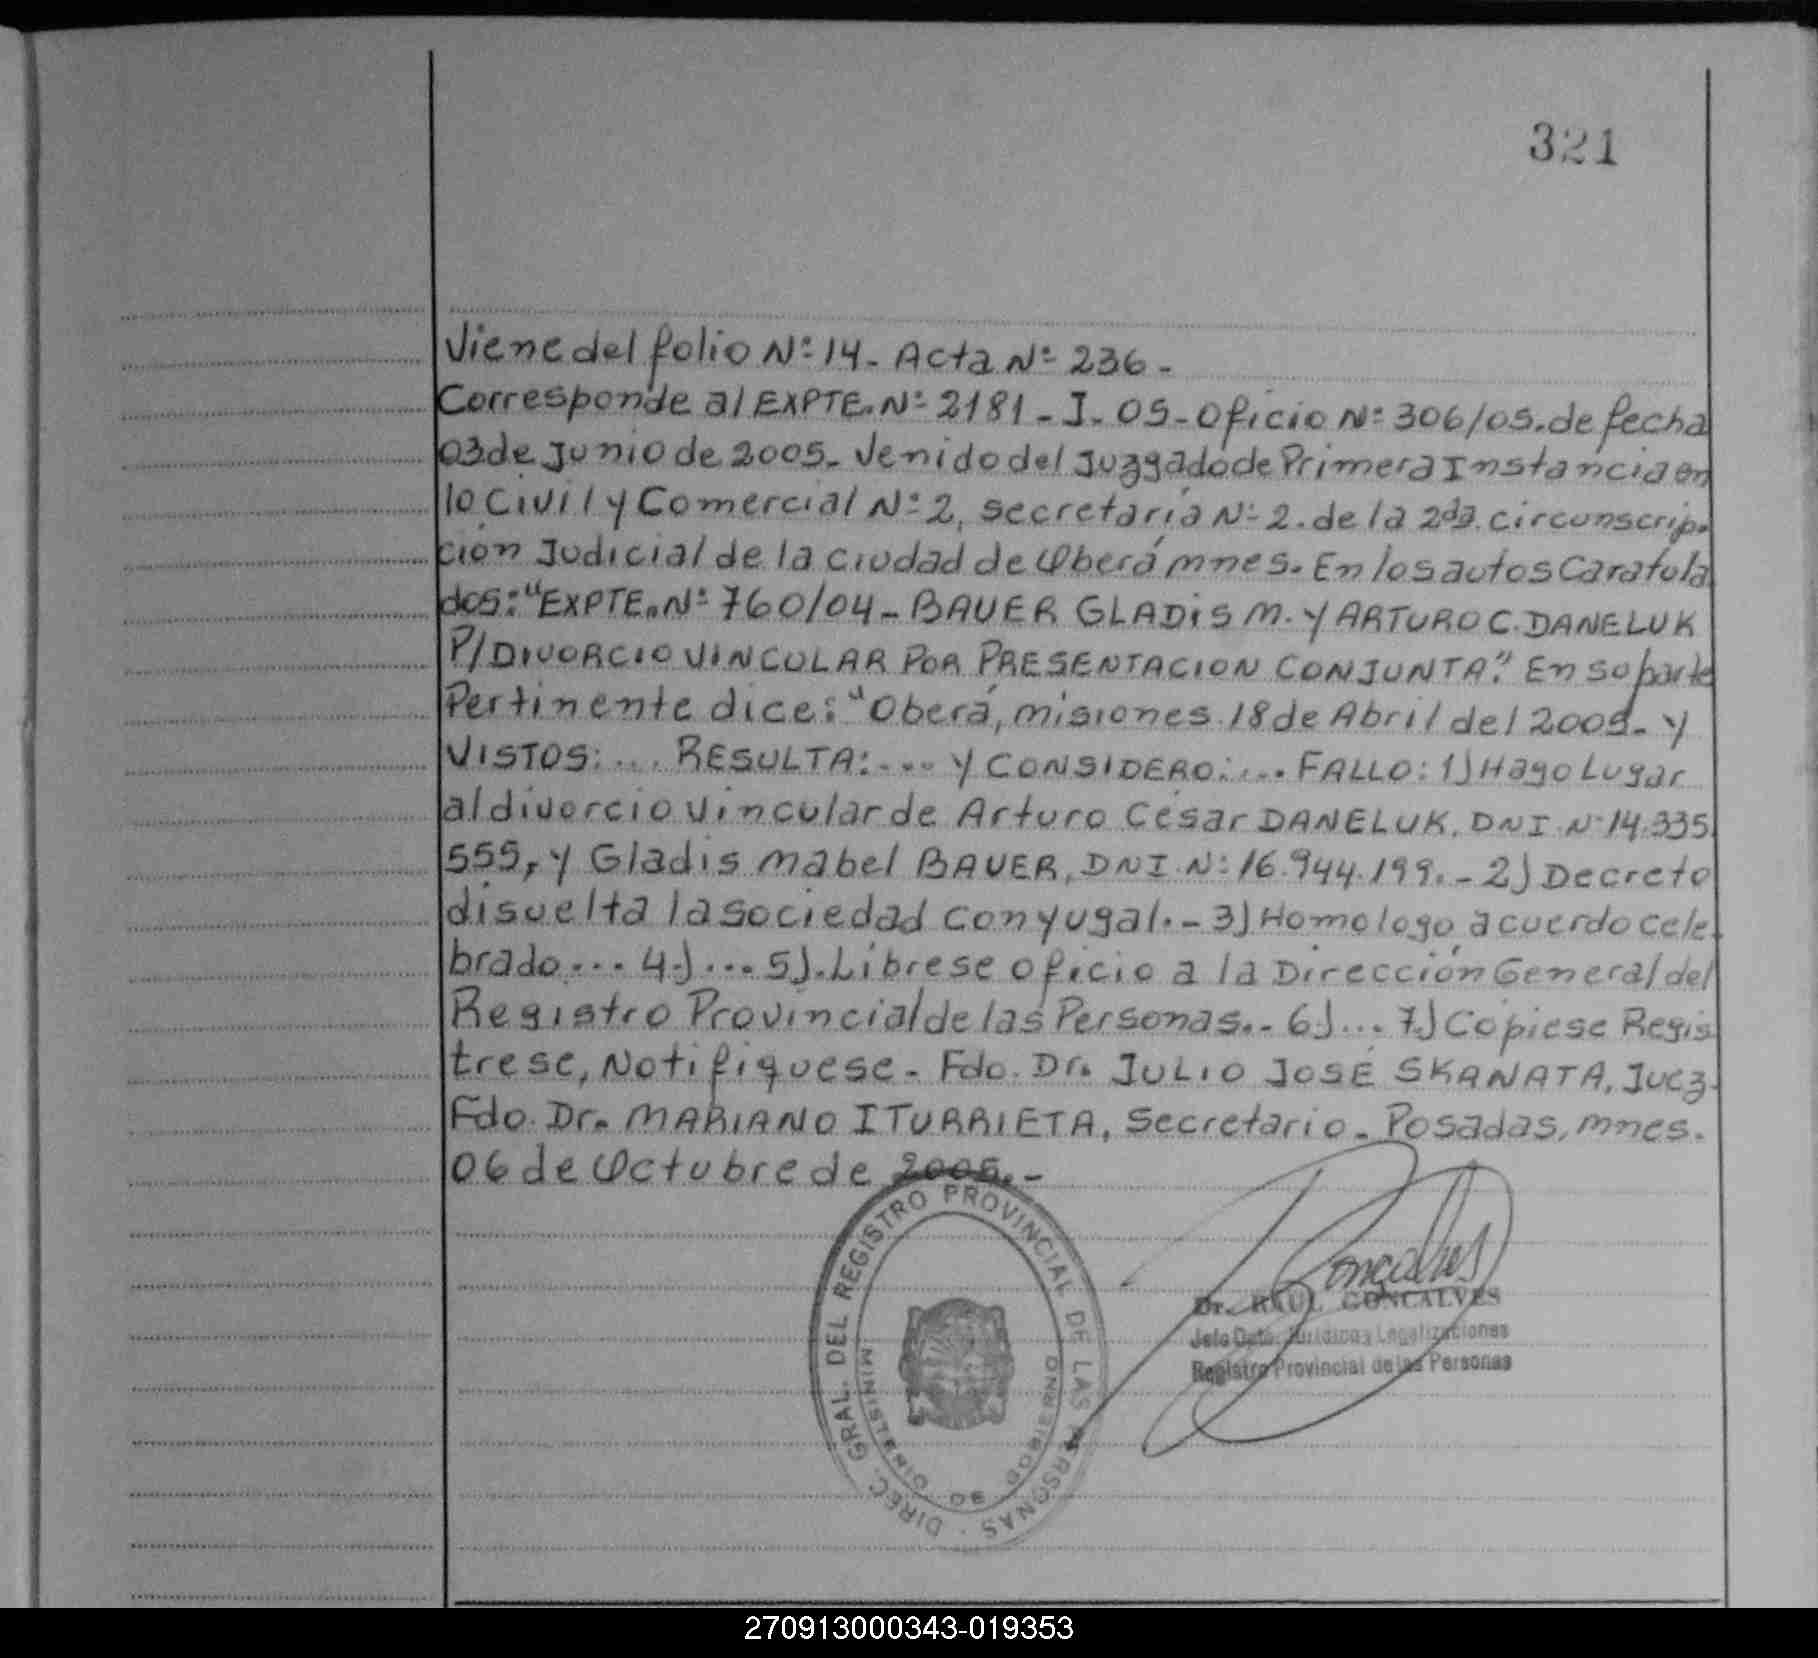 321
Viene del folio Nº 14 - Acta Nº 236 -
Corresponde al EXPTE. Nº 2181 - I - 05 - Oficio Nº 306/05. de fecha
03 de Junio de 2005 - Venido del Juzgado de Primera Instancia en
lo Civil y Comercial Nº 2, secretaría Nº 2. de la 2da. circunscrip-
ción Judicial de la ciudad de Oberá mnes. En los autos Caratula
dos: "EXPTE. Nº 760/04 - BAUER GLADIS M. Y ARTURO C. DANELUK
P/DIVORCIO VINCULAR POR PRESENTACION CONJUNTA." En su parte
Pertinente dice: "Oberá, misiones 18 de Abril del 2005. - Y
VISTOS: ... RESULTA: ... Y CONSIDERO: ... FALLO: 1) Hago Lugar
al divorcio vincular de Arturo César DANELUK, DNI Nº 14.335.
555, y Gladis Mabel BAUER, DNI. Nº 16.944.199. - 2) Decreto
disuelta la sociedad conyugal. - 3) Homologo acuerdo cele
brado ... 4.) ... 5). Líbrese oficio a la Dirección General del
Registro Provincial de las Personas. - 6.) ... 7.) Cópiese Regis
trese, Notifíquese - Fdo. Dr. JULIO JOSÉ SKANATA, Juez.
Fdo. Dr. MARIANO ITURRIETA, Secretario - Posadas, mnes.
06 de Octubre de 2005. -
DIREC. GRAL. DEL REGISTRO PROVINCIAL DE LAS PERSONAS
MINISTERIO DE GOBIERNO
Goncalves
Dr. RAUL GONCALVES
Jefe Dpto. Jurídico y Legalizaciones
Registro Provincial de las Personas
270913000343-019353